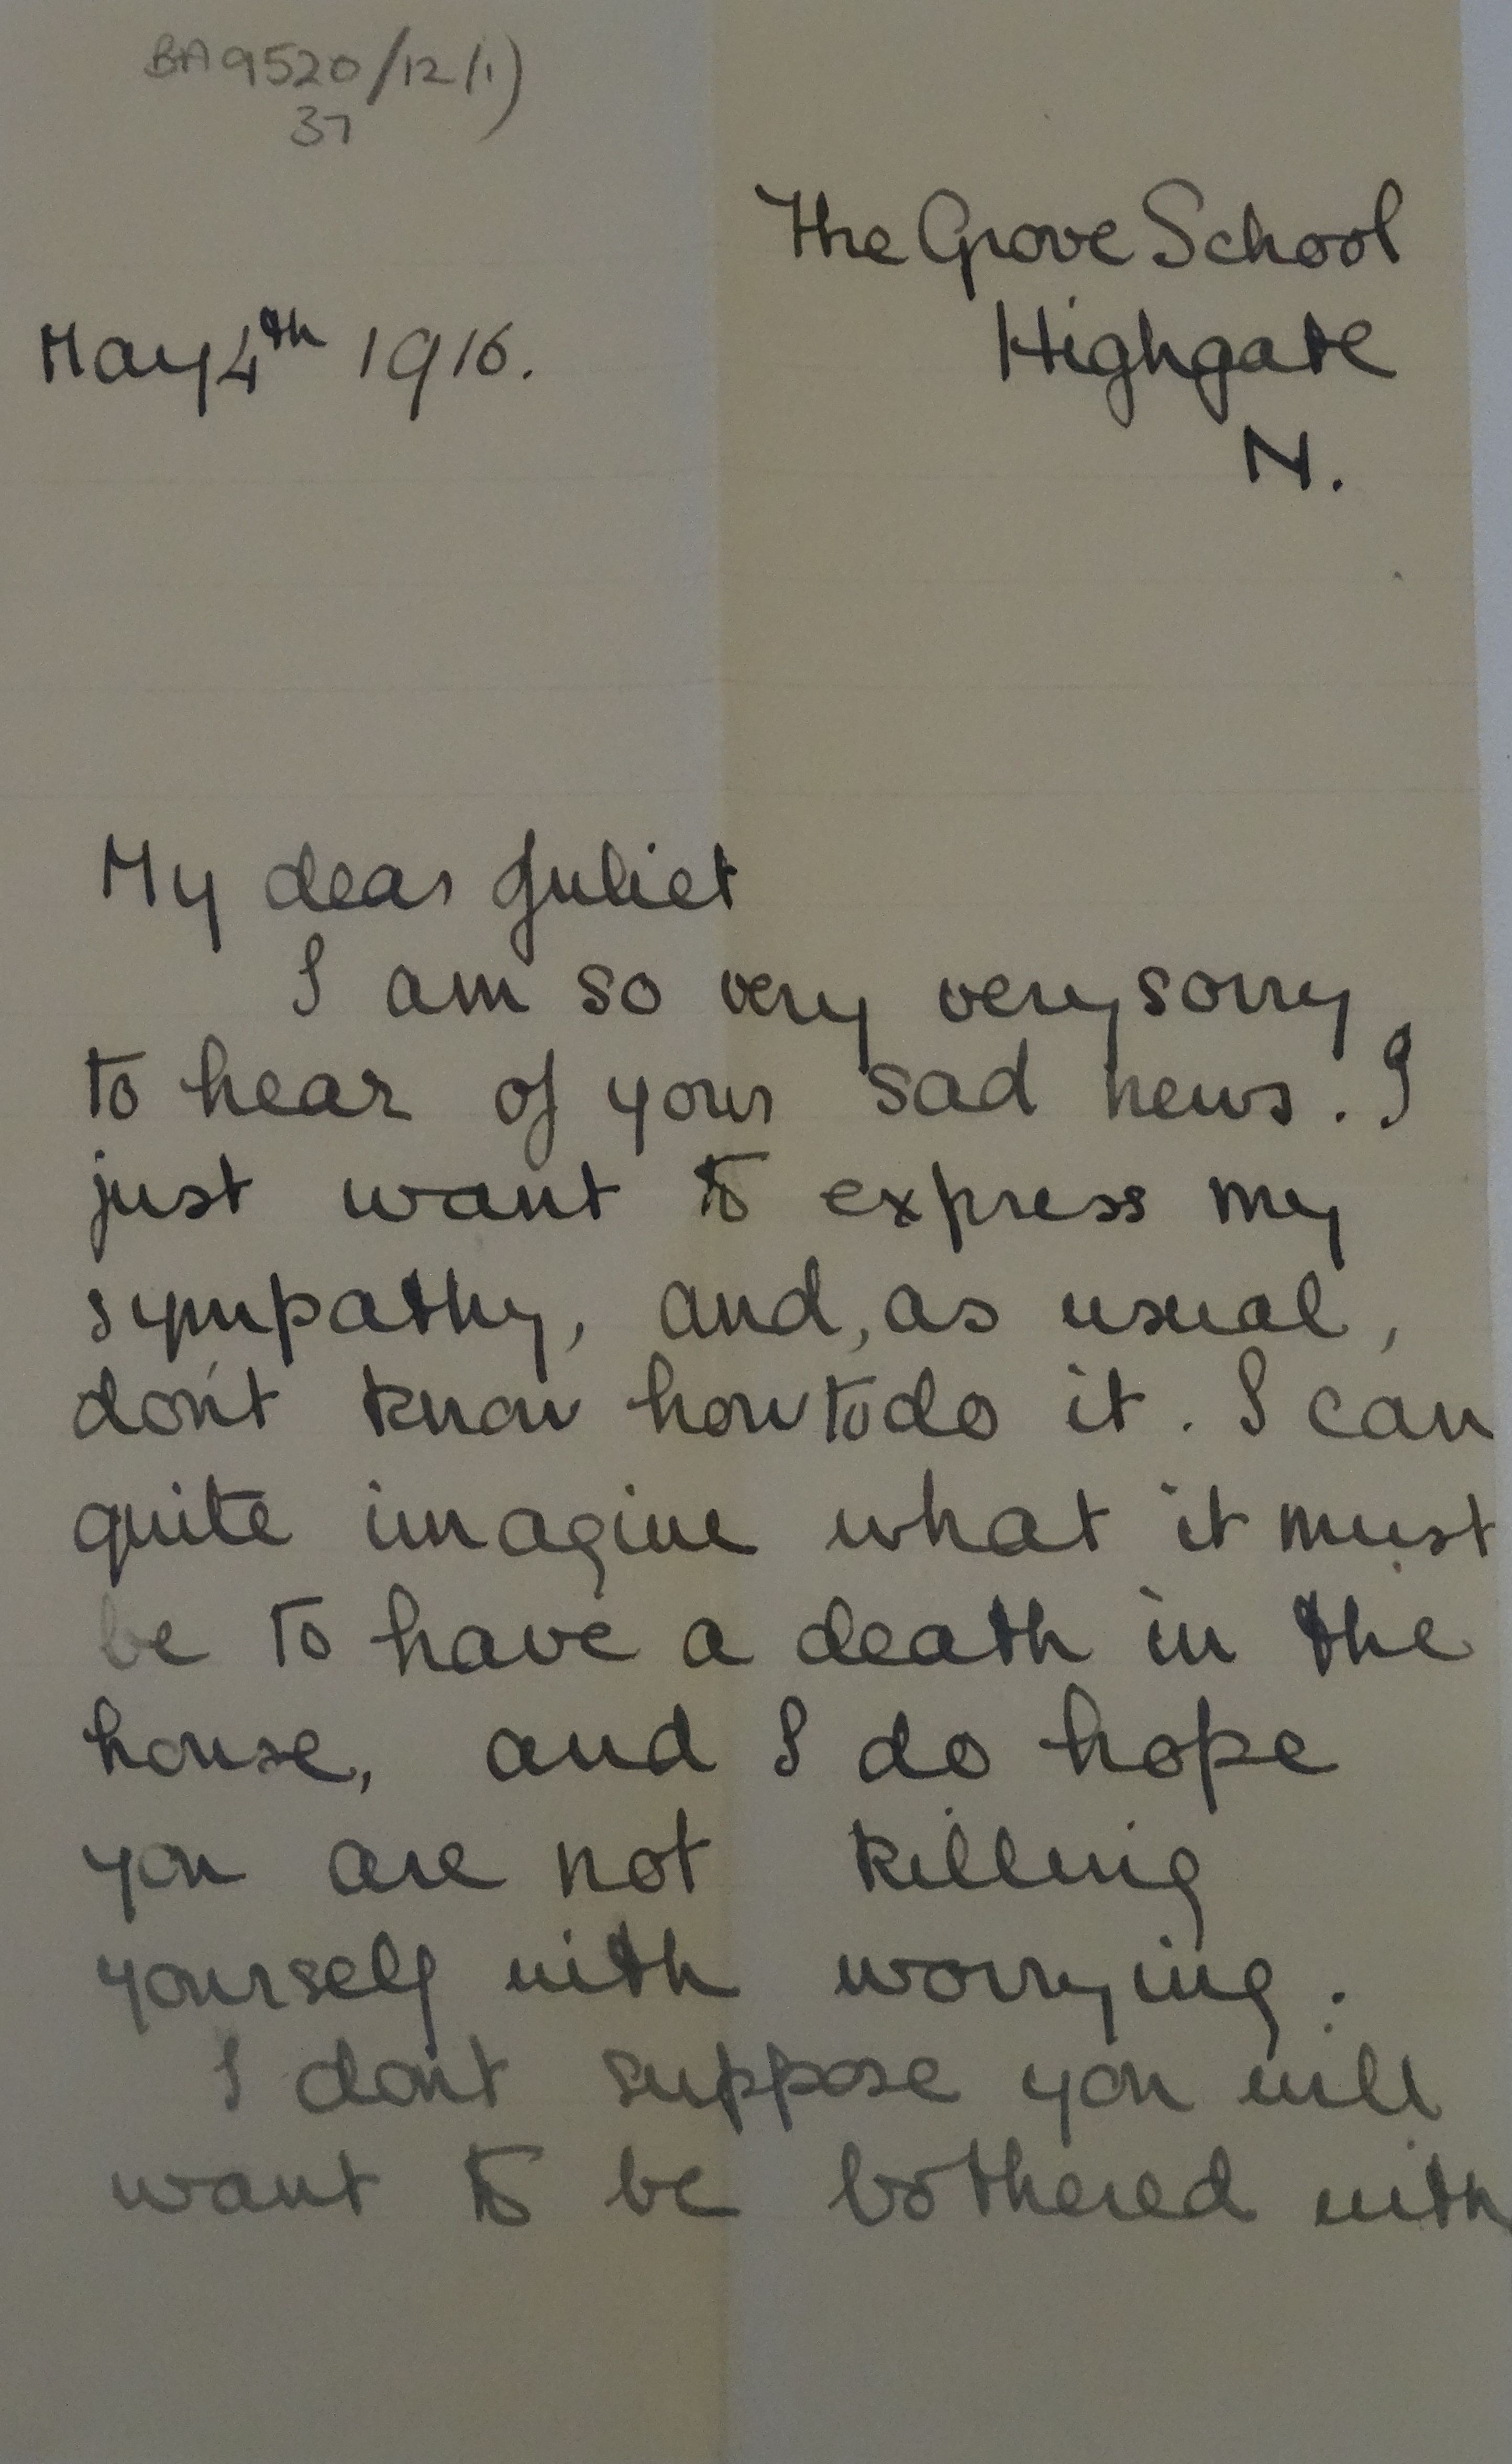 BA9520/12(1)
37
The Grove School
May 4th 1916.
Highgate
N.
My dear Juliet
I am so very very sorry
to hear of your sad news. I
just want to express my
sympathy, and, as usual,
don't know how to do it. I can
quite imagine what it must
be to have a death in the
house, and I do hope
you are not killing
yourself with worrying.
I dont suppose you will
want to be bothered with